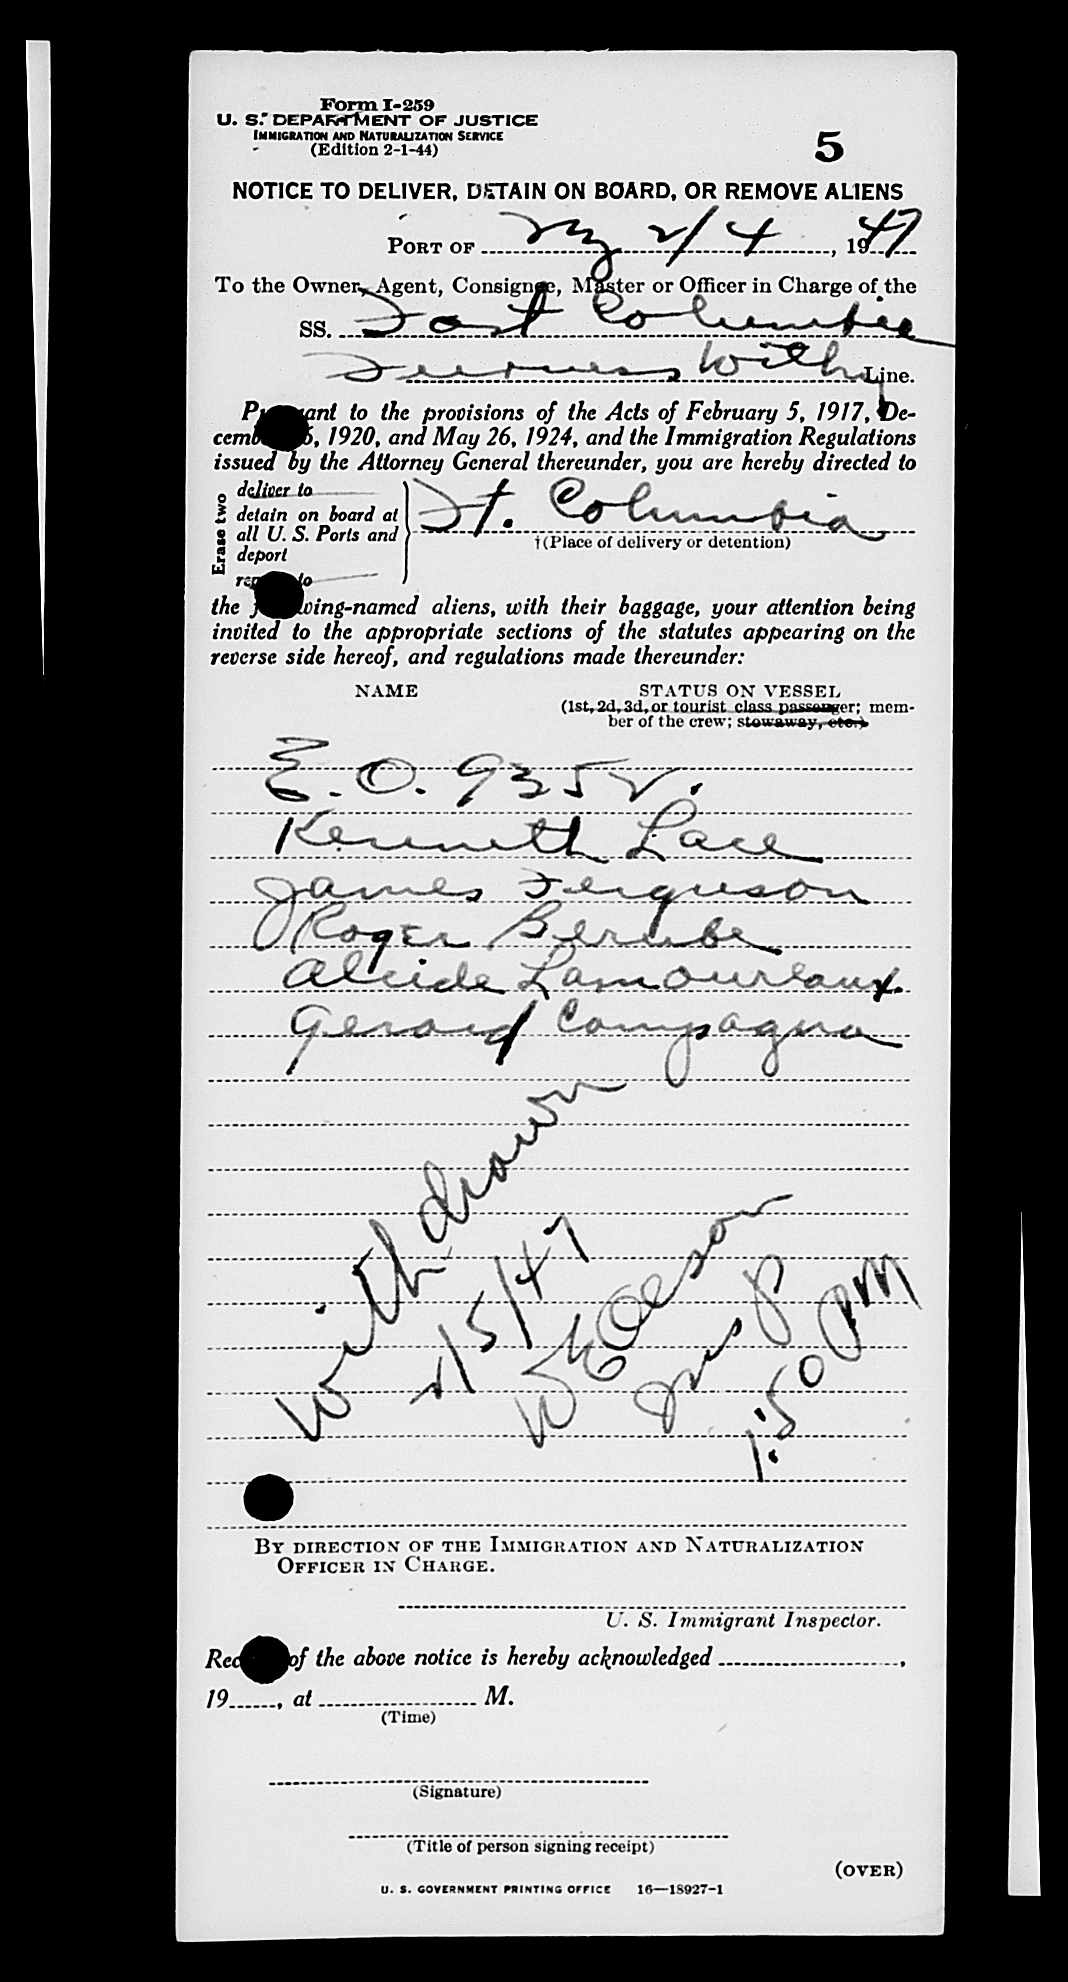 Form I-259
U. S. DEPARTMENT OF JUSTICE
IMMIGRATION AND NATURALIZATION SERVICE
(Edition 2-1-44)
5
NOTICE TO DELIVER, DETAIN ON BOARD, OR REMOVE ALIENS
PORT OF NY 2/4, 1947
To the Owner, Agent, Consignee, Master or Officer in Charge of the
SS. Fort Columbia
Furness Withy Line.
Pursuant to the provisions of the Acts of February 5, 1917, De-
cember 26, 1920, and May 26, 1924, and the Immigration Regulations
issued by the Attorney General thereunder, you are hereby directed to
Erase two
deliver to
detain on board at
all U. S. Ports and
deport
remove to
Ft. Columbia
†(Place of delivery or detention)
the following-named aliens, with their baggage, your attention being
invited to the appropriate sections of the statutes appearing on the
reverse side hereof, and regulations made thereunder:
NAME STATUS ON VESSEL
(1st, 2d, 3d, or tourist class passenger; mem-
ber of the crew; stowaway, etc.)
E.O. 9352.
Kenneth Lace
James Ferguson
Roger Berube
Alcide Lamoureaux
Gerard Compagna
Withdrawn
2/5/47
Ins P
1:50 PM
BY DIRECTION OF THE IMMIGRATION AND NATURALIZATION
OFFICER IN CHARGE.
U. S. Immigrant Inspector.
Receipt of the above notice is hereby acknowledged ,
19 , at M.
(Time)
(Signature)
(Title of person signing receipt)
(OVER)
U. S. GOVERNMENT PRINTING OFFICE 16—18927-1